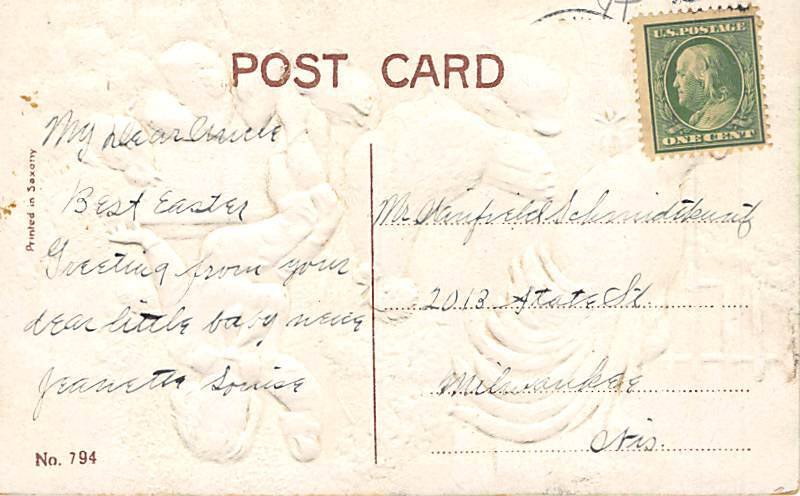 POST CARD
U.S. POSTAGE
ONE CENT
My Dear Uncle
Best Easter
Greeting from your
dear little baby neice
Jeanette Louise
Mr. Winfield Schmidtkuntz
2013 State St.
Milwaukee
Wis.
Printed in Saxony
No. 794